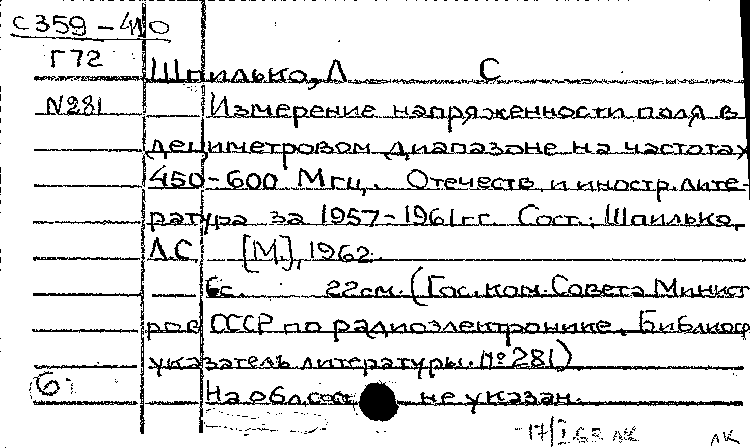 С359-410
Г72
Шпилько, Л С
N281 Измерение напряженности поля в
дециметровом диапазоне на частотах
450-600 Мгц. Отечеств и иностр. лите-
ратура за 1957-1961гг. Сост.: Шпилько,
Л.С. [М.], 1962.
6с. 22см. (Гос. ком. Совета Минист
ров СССР по радиоэлектронике. Библиогр
указатель литературы. №281)
6
На обл. не указан.
-17/I 63 ЛК ЛК